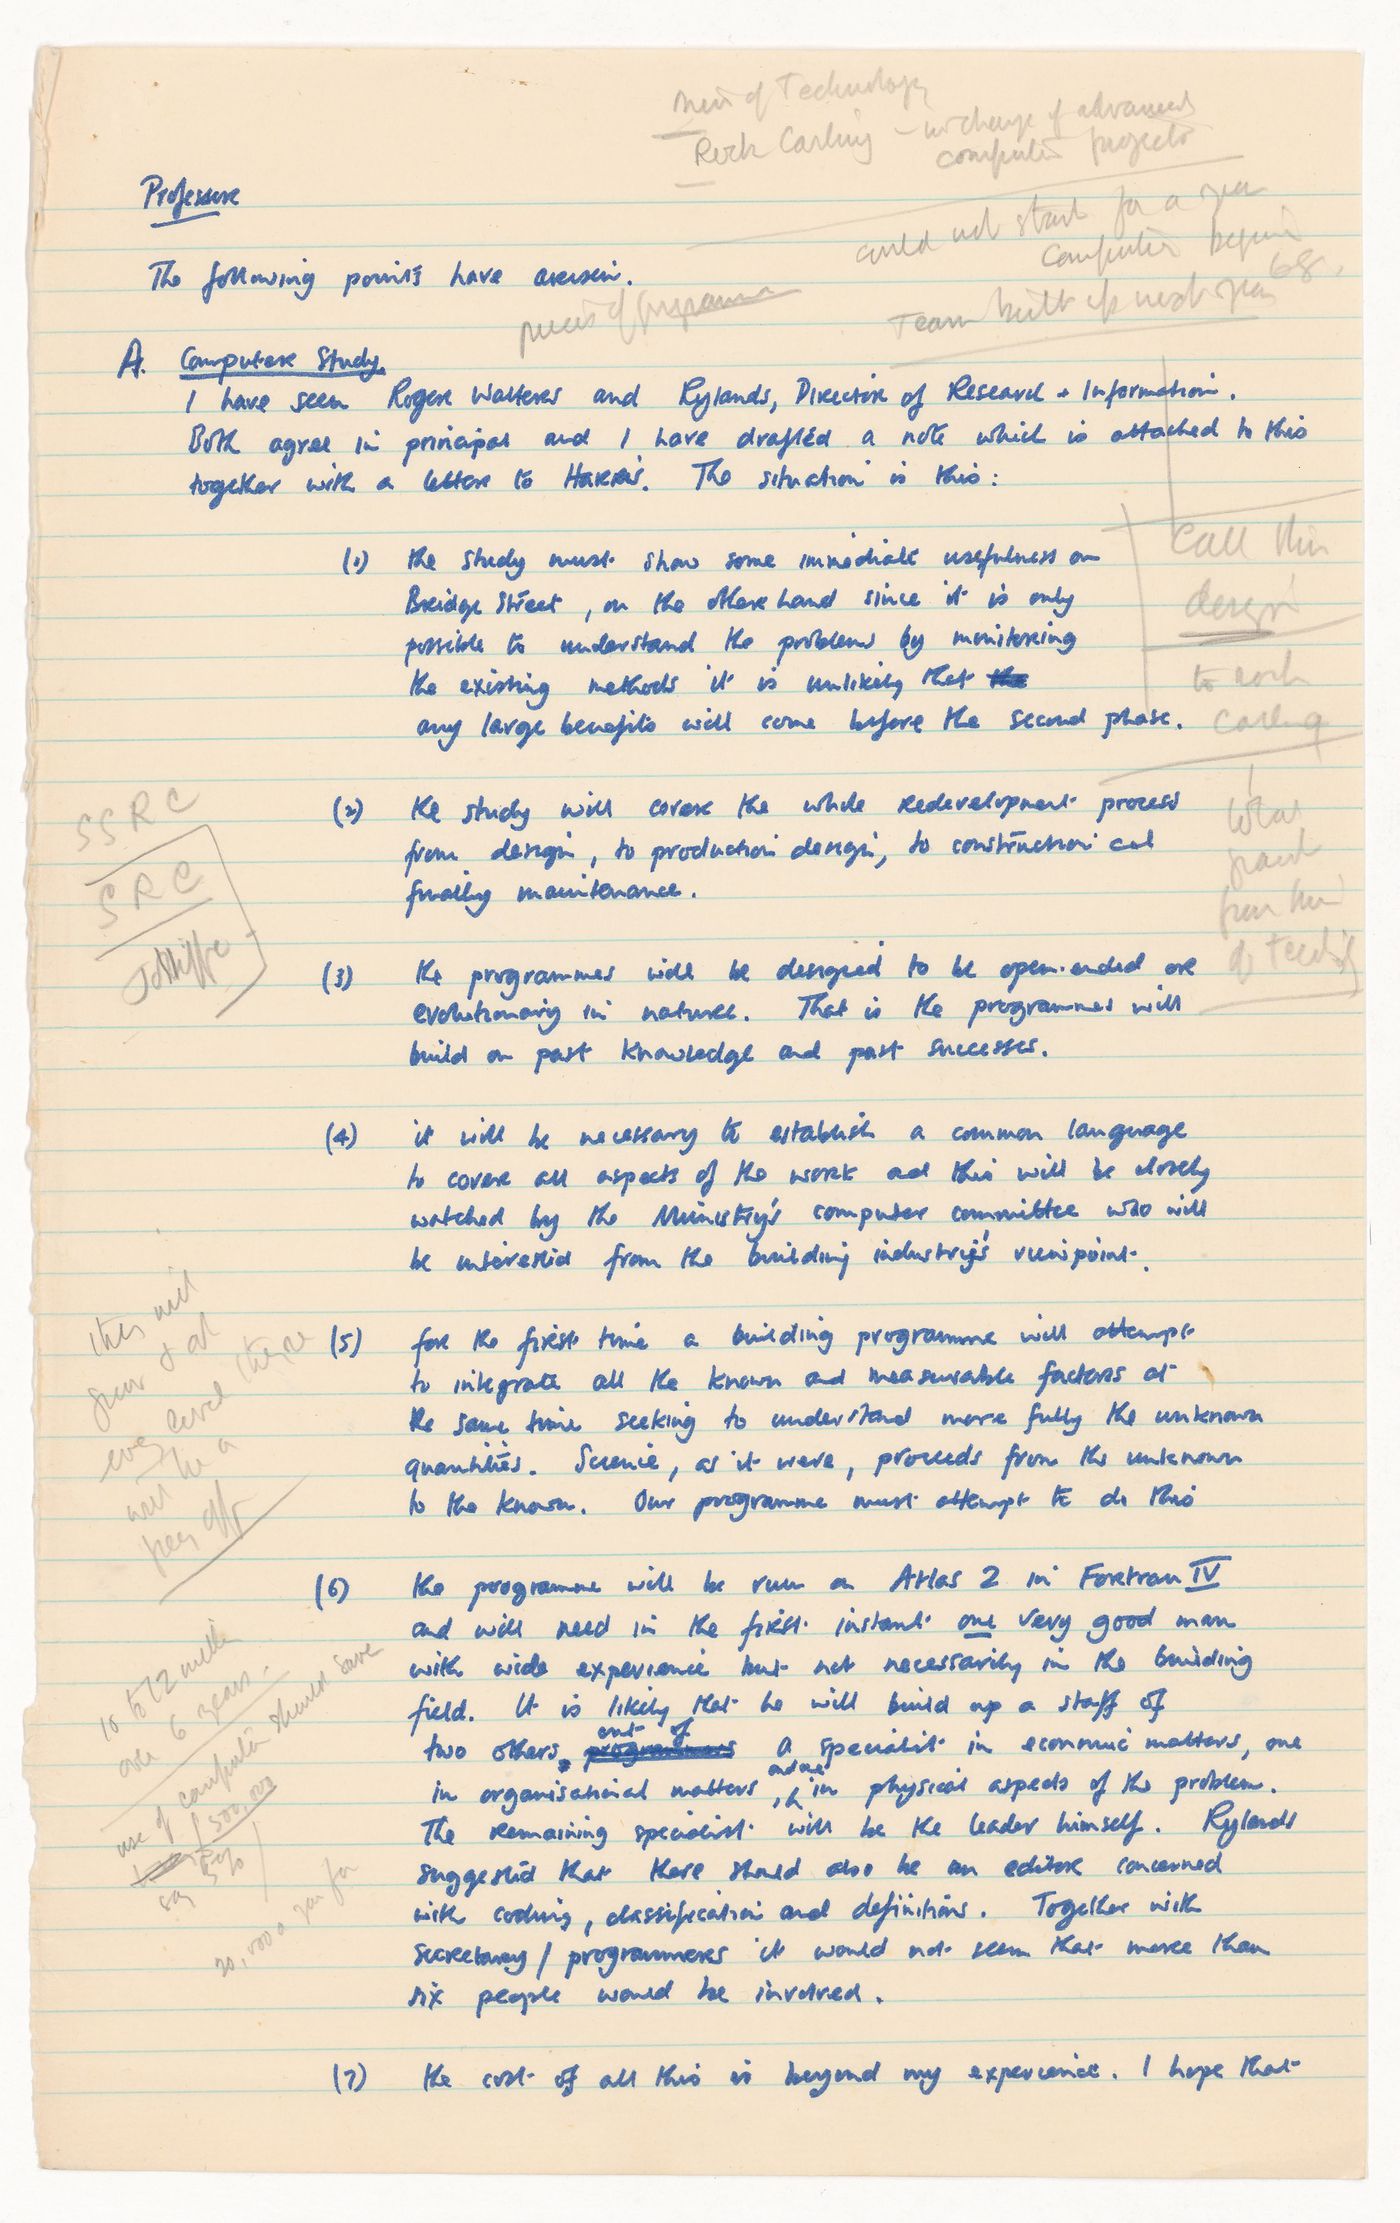 Min of Technology
Rock Carling - in charge of advanced
computer projects
Professor
could not start for a year
computer begin
68.
The following points have arisen.
pieces of programme
Team built up next year
A. Computer Study.
I have seen Roger Walters and Rylands, Director of Research + Information.
Both agree in principal and I have drafted a note which is attached to this
together with a letter to Harris. The situation is this:
(1) the study must show some immediate usefulness on
Bridge Street, on the other hand since it is only
possible to understand the problems by monitoring
the existing methods it is unlikely that the
any large benefits will come before the second phase.
Call this
design
to each
Carling
What
grant
from him
SSRC
SRC
(2) the study will cover the whole redevelopment process
from design, to production design, to construction and
finally maintenance.
(3) the programmes will be designed to be open-ended or
evolutionary in nature. That is the programmes will
build on past knowledge and past successes.
(4) it will be necessary to establish a common language
to cover all aspects of the work and this will be closely
watched by the Ministry's computer committee who will
be interested from the building industry's viewpoint.
they will
every level there
will be a
pay off
(5) for the first time a building programme will attempt
to integrate all the known and measurable factors at
the same time seeking to understand more fully the unknown
quantities. Science, as it were, proceeds from the unknown
to the known. Our programme must attempt to do this
(6) the programme will be run on Atlas 2 in Fortran IV
and will need in the first instant one very good man
with wide experience but not necessarily in the building
field. It is likely that he will build up a staff of
two others, programmers out of a specialist in economic matters, one
in organisational matters, and one in physical aspects of the problem.
The remaining specialist will be the leader himself. Rylands
suggested that there should also be an editor concerned
with coding, classification and definitions. Together with
secretary / programmers it would not seem that more than
six people would be involved.
10 to 12 million
over 6 years.
use of computer should save
£500,000
say 5%
20,000 a year for
(7) the cost of all this is beyond my experience. I hope that